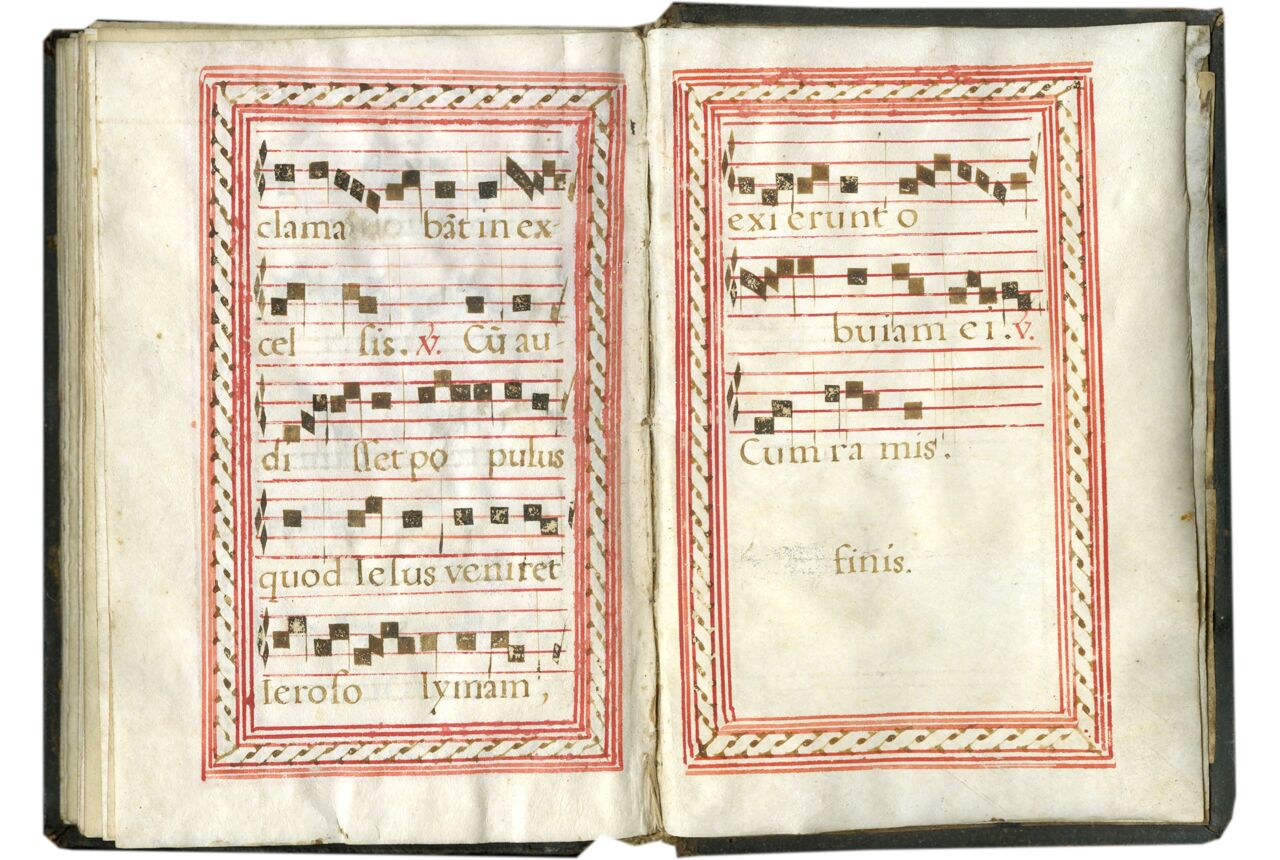 clama bãt in ex-
cel sis. ℣. Cũ au-
di sset po pulus
quod Iesus veniret
Ieroso lymam,
exi erunt o
buiam ei. ℣.
Cum ra mis.
finis.